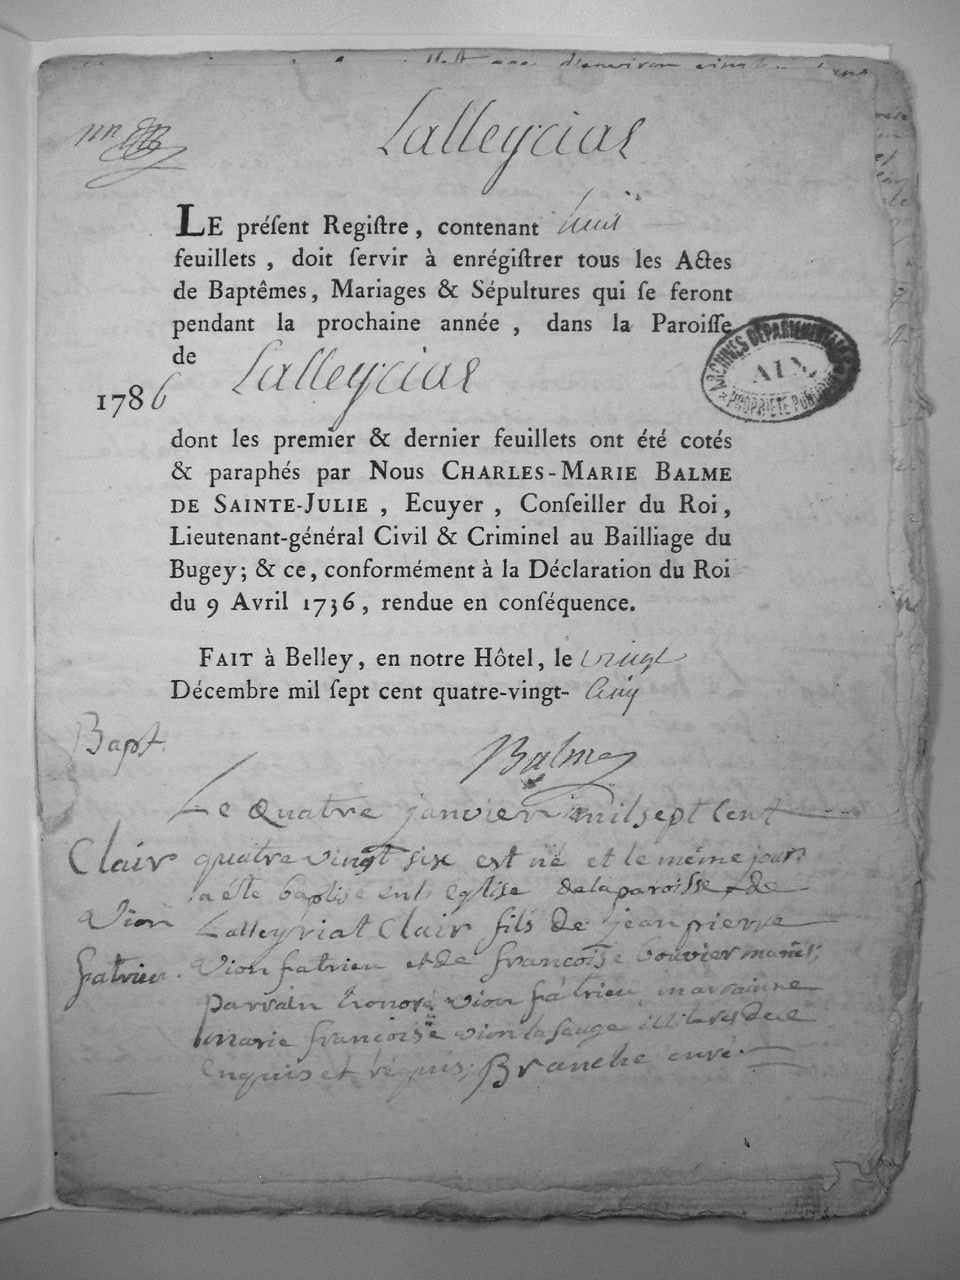 Lalleyciat
LE préſent Regiſtre, contenant huit
feuillets, doit ſervir à enrégiſtrer tous les Actes
de Baptêmes, Mariages & Sépultures qui ſe feront
pendant la prochaine année, dans la Paroiſſe
de Lalleyciat
1786
ARCHIVES DÉPARTEMENTALES
AIN
PROPRIÉTÉ PUBLIQUE
dont les premier & dernier feuillets ont été cotés
& paraphés par Nous CHARLES-MARIE BALME
DE SAINTE-JULIE, Ecuyer, Conſeiller du Roi,
Lieutenant-général Civil & Criminel au Bailliage du
Bugey; & ce, conformément à la Déclaration du Roi
du 9 Avril 1736, rendue en conſéquence.
FAIT à Belley, en notre Hôtel, le vingt
Décembre mil ſept cent quatre-vingt- cinq
Balme
Bapt.
Clair
Vion
fatrieu.
Le quatre janvier mil sept cent
quatre vingt six est né et le même jour
a été baptisé en l'eglise de la paroisse de
Lalleyriat Clair fils de jean pierre
Vion fatrieu et de francoise bouvier mariés;
parrain honoré vion fatrieu, marrainne
marie francoise vion la sauge illiterés de ce
Enquis et réquis; Branche curé.